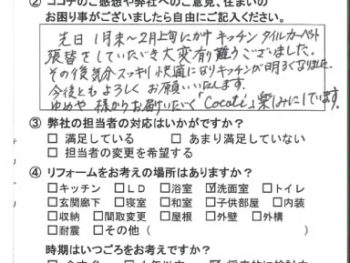 ② ココチのご感想や弊社へのご意見、住まいの
お困り事がございましたら自由にご記入ください。
先日1月末〜2月上旬にかけキッチンタイルカーペット
張替をしていただき大変有り難うございました。
その後気分スッキリ快適になりキッチンが明るくなりました。
今後ともよろしくお願いいたします。
ゆめや様からお届けいただく「Cocoti」楽しみにしています。
③ 弊社の担当者の対応はいかがですか?
□満足している □あまり満足していない
□担当者の変更を希望する
④ リフォームをお考えの場所はありますか?
□キッチン □LD □浴室 ☑洗面室 □トイレ
□玄関廊下 □寝室 □和室 □子供部屋 □内装
□収納 □間取変更 □屋根 □外壁 □外構
□耐震 □その他(
時期はいつごろをお考えですか?